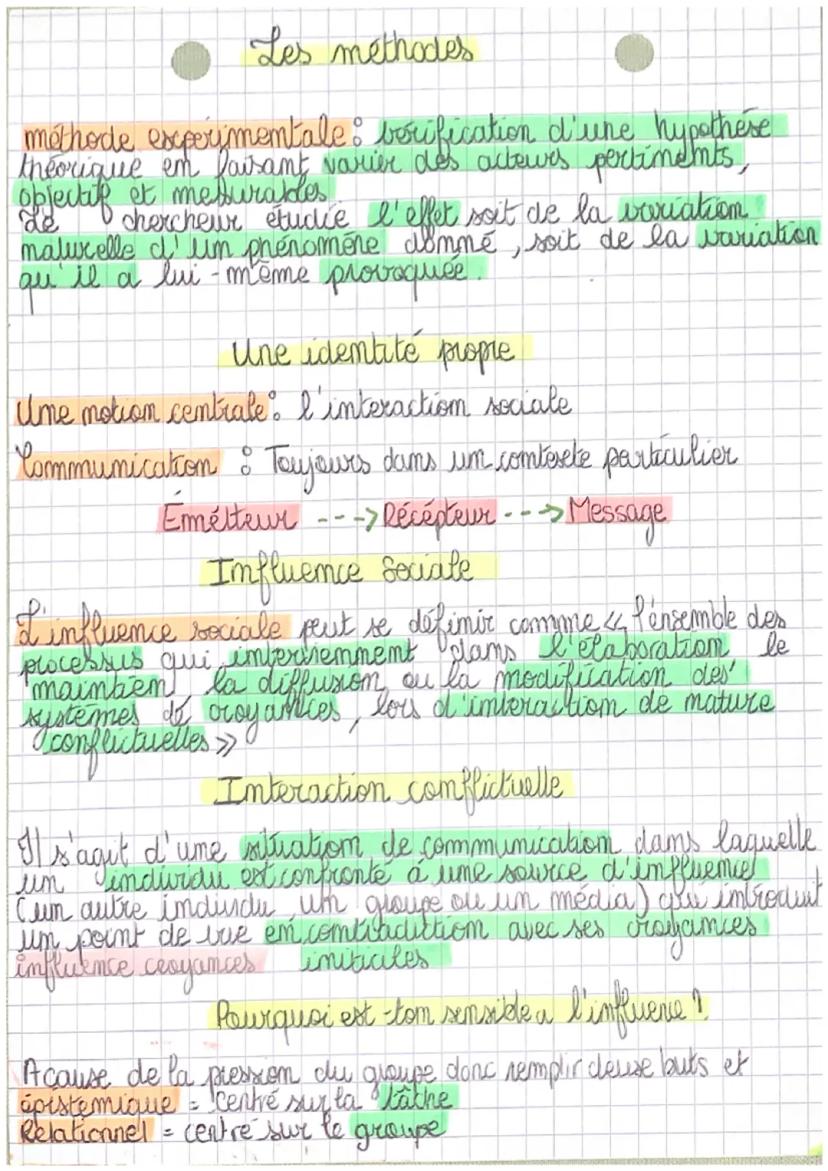 Les méthodes
méthode expérimentale : vérification d'une hypothèse
théorique en faisant varier des acteurs pertinents,
objectif et messurables
Le chercheur étudie l'effet soit de la variation
naturelle d'un phénomène donné, soit de la variation
qu'il a lui-même provoquée.
Une identité propre
Une notion centrale : l'interaction sociale
Communication : Toujours dans un contexte particulier
Émétteur ---> Récépteur ---> Message
Influence Sociale
L'influence sociale peut se définir comme << l'ensemble des
processus qui interviennent dans l'élaboration le
maintien, la diffusion ou la modification des
systèmes de croyances, lors d'interaction de nature
conflictuelles >>
Interaction conflictuelle
Il s'agit d'une situation de communication dans laquelle
un individu est confronté à une source d'influence
(un autre individu un groupe ou un média) qui introduit
un point de vue en contradittion avec ses croyances
influence croyances initiales
Pourquoi est-ton sensible a l'influence ?
A cause de la pression du groupe donc remplir deux buts et
épistemique = centré sur la tâche
Relationnel = centré sur le groupe